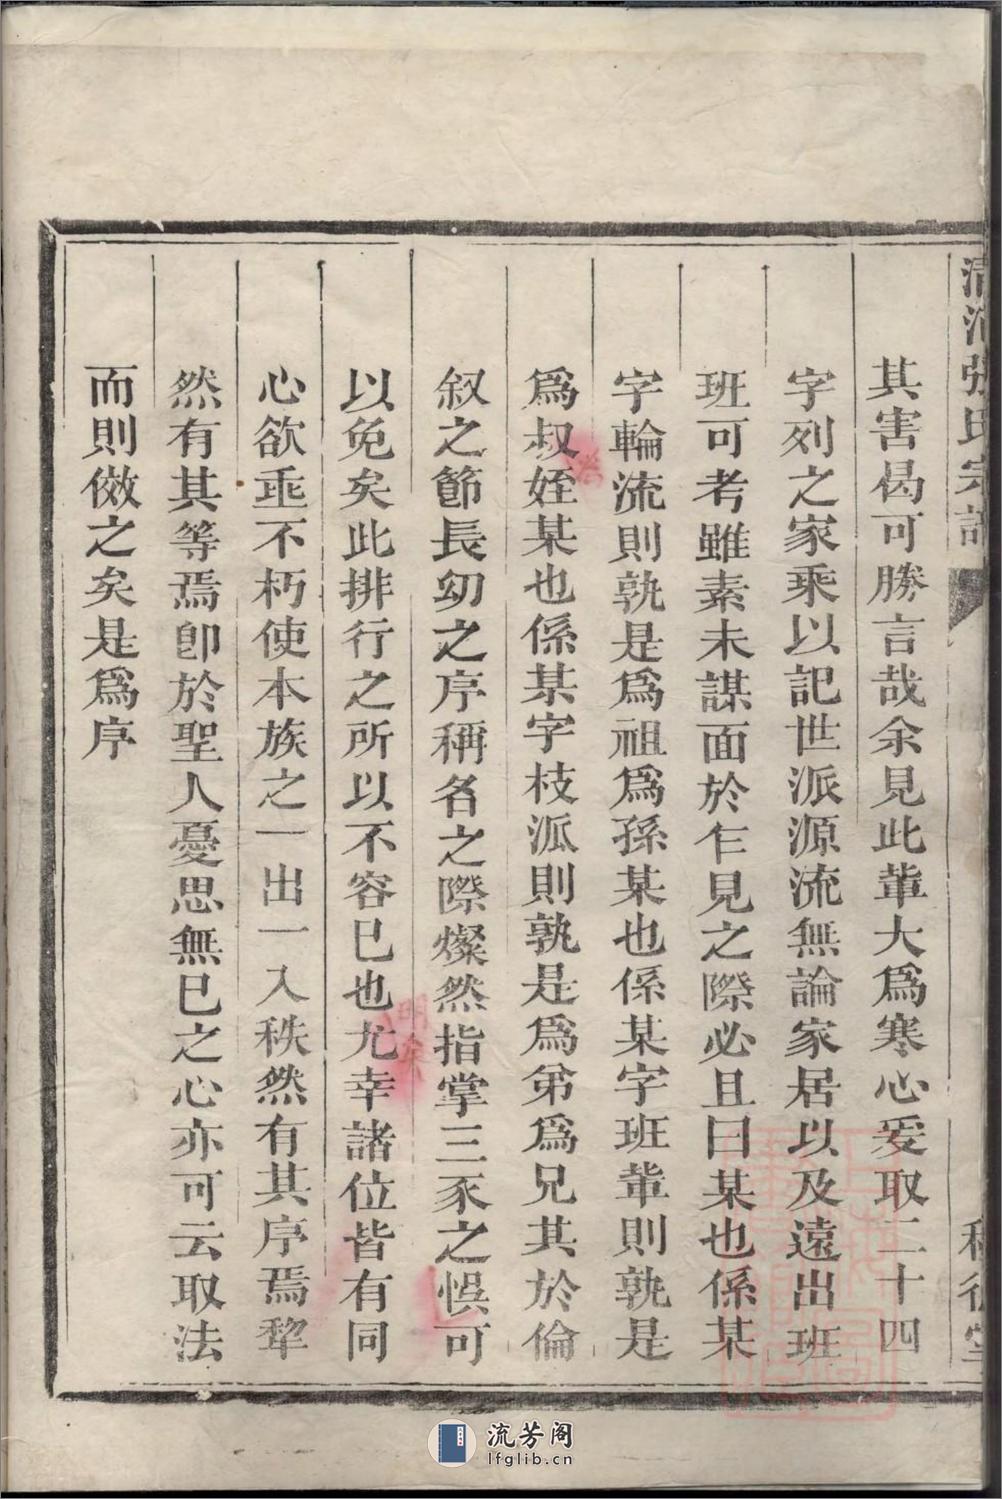 清河張氏宗譜
其害曷可勝言哉余見此軰大爲寒心爰取二十四
字列之家乘以記世派源流無論家居以及遠出班
班可考雖素未謀面於乍見之際必且曰某也係某
字輪流則孰是爲祖爲孫某也係某字班軰則孰是
爲叔姪某也係某字枝派則孰是爲弟爲兄其於倫
叙之節長幼之序稱名之際燦然指掌三豕之悮可
以免矣此排行之所以不容已也尤幸諸位皆有同
心欲垂不朽使本族之一出一入秩然有其序焉犂
然有其等焉卽於聖人憂思無已之心亦可云取法
而則傚之矣是爲序
流芳阁
lfglib.cn